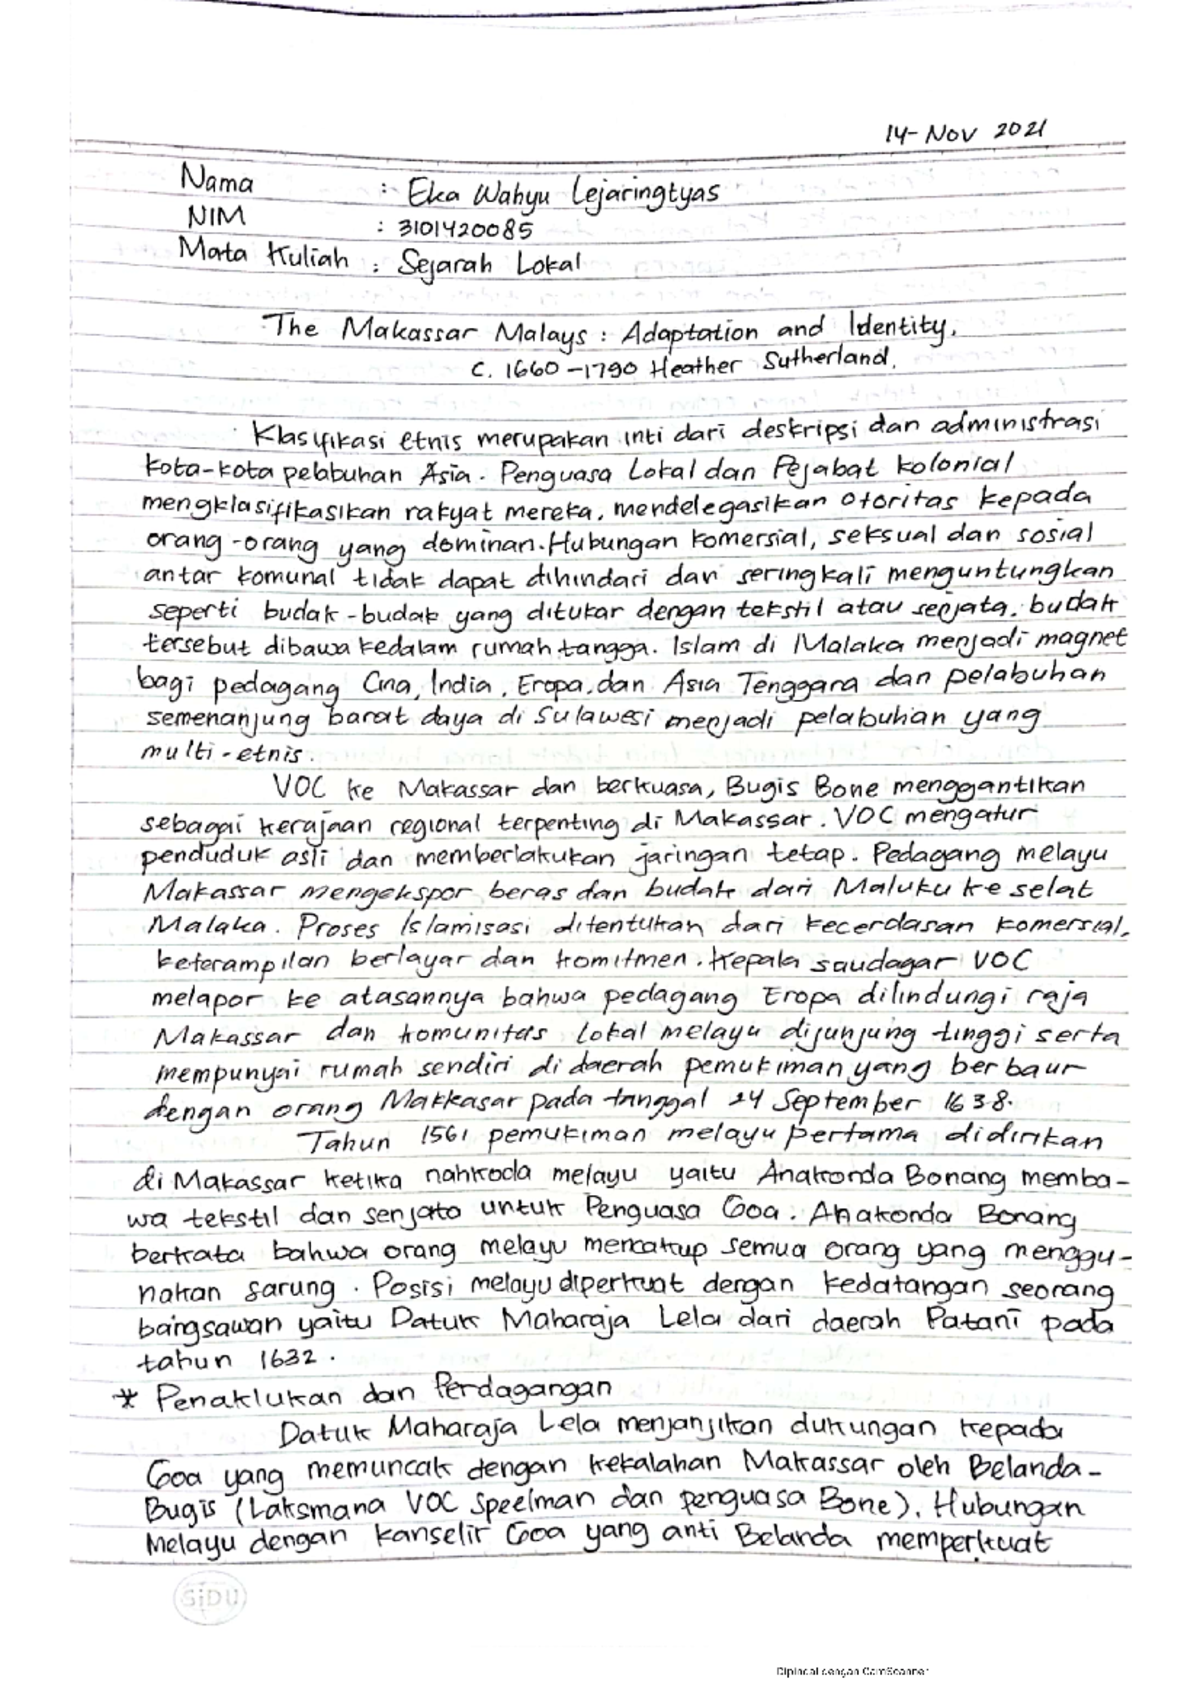 14-Nov 2021
Nama : Eka Wahyu Lejaringtyas
NIM : 3101420085
Mata Kuliah : Sejarah Lokal
The Makassar Malays : Adaptation and Identity,
C. 1660-1790 Heather Sutherland.
Klasifikasi etnis merupakan inti dari deskripsi dan administrasi
kota-kota pelabuhan Asia. Penguasa Lokal dan Pejabat kolonial
mengklasifikasikan rakyat mereka, mendelegasikan otoritas kepada
orang-orang yang dominan. Hubungan komersial, seksual dan sosial
antar komunal tidak dapat dihindari dan seringkali menguntungkan
seperti budak-budak yang ditukar dengan tekstil atau senjata, budak
tersebut dibawa kedalam rumah tangga. Islam di Malaka menjadi magnet
bagi pedagang Cina, India, Eropa, dan Asia Tenggara dan pelabuhan
semenanjung barat daya di Sulawesi menjadi pelabuhan yang
multi-etnis.
VOC ke Makassar dan berkuasa, Bugis Bone menggantikan
sebagai kerajaan regional terpenting di Makassar. VOC mengatur
penduduk asli dan memberlakukan jaringan tetap. Pedagang melayu
Makassar mengekspor beras dan budak dari Maluku ke selat
Malaka. Proses Islamisasi ditentukan dari kecerdasan komersial,
keterampilan berlayar dan komitmen. Kepala saudagar VOC
melapor ke atasannya bahwa pedagang Eropa dilindungi raja
Makassar dan komunitas lokal melayu dijunjung tinggi serta
mempunyai rumah sendiri di daerah pemukiman yang berbaur
dengan orang Makkasar pada tanggal 24 September 1638.
Tahun 1561 pemukiman melayu pertama didirikan
di Makassar ketika nahkoda melayu yaitu Anakonda Bonang memba-
wa tekstil dan senjata untuk Penguasa Goa. Anakonda Bonang
berkata bahwa orang melayu mencakup semua orang yang menggu-
nakan sarung. Posisi melayu diperkuat dengan kedatangan seorang
bangsawan yaitu Datuk Maharaja Lela dari daerah Patani pada
tahun 1632.
* Penaklukan dan Perdagangan
Datuk Maharaja Lela menjanjikan dukungan kepada
Goa yang memuncak dengan kekalahan Makassar oleh Belanda-
Bugis (Laksmana VOC Speelman dan penguasa Bone). Hubungan
Melayu dengan kanselir Goa yang anti Belanda memperkuat
SiDU
Dipindai dengan CamScanner